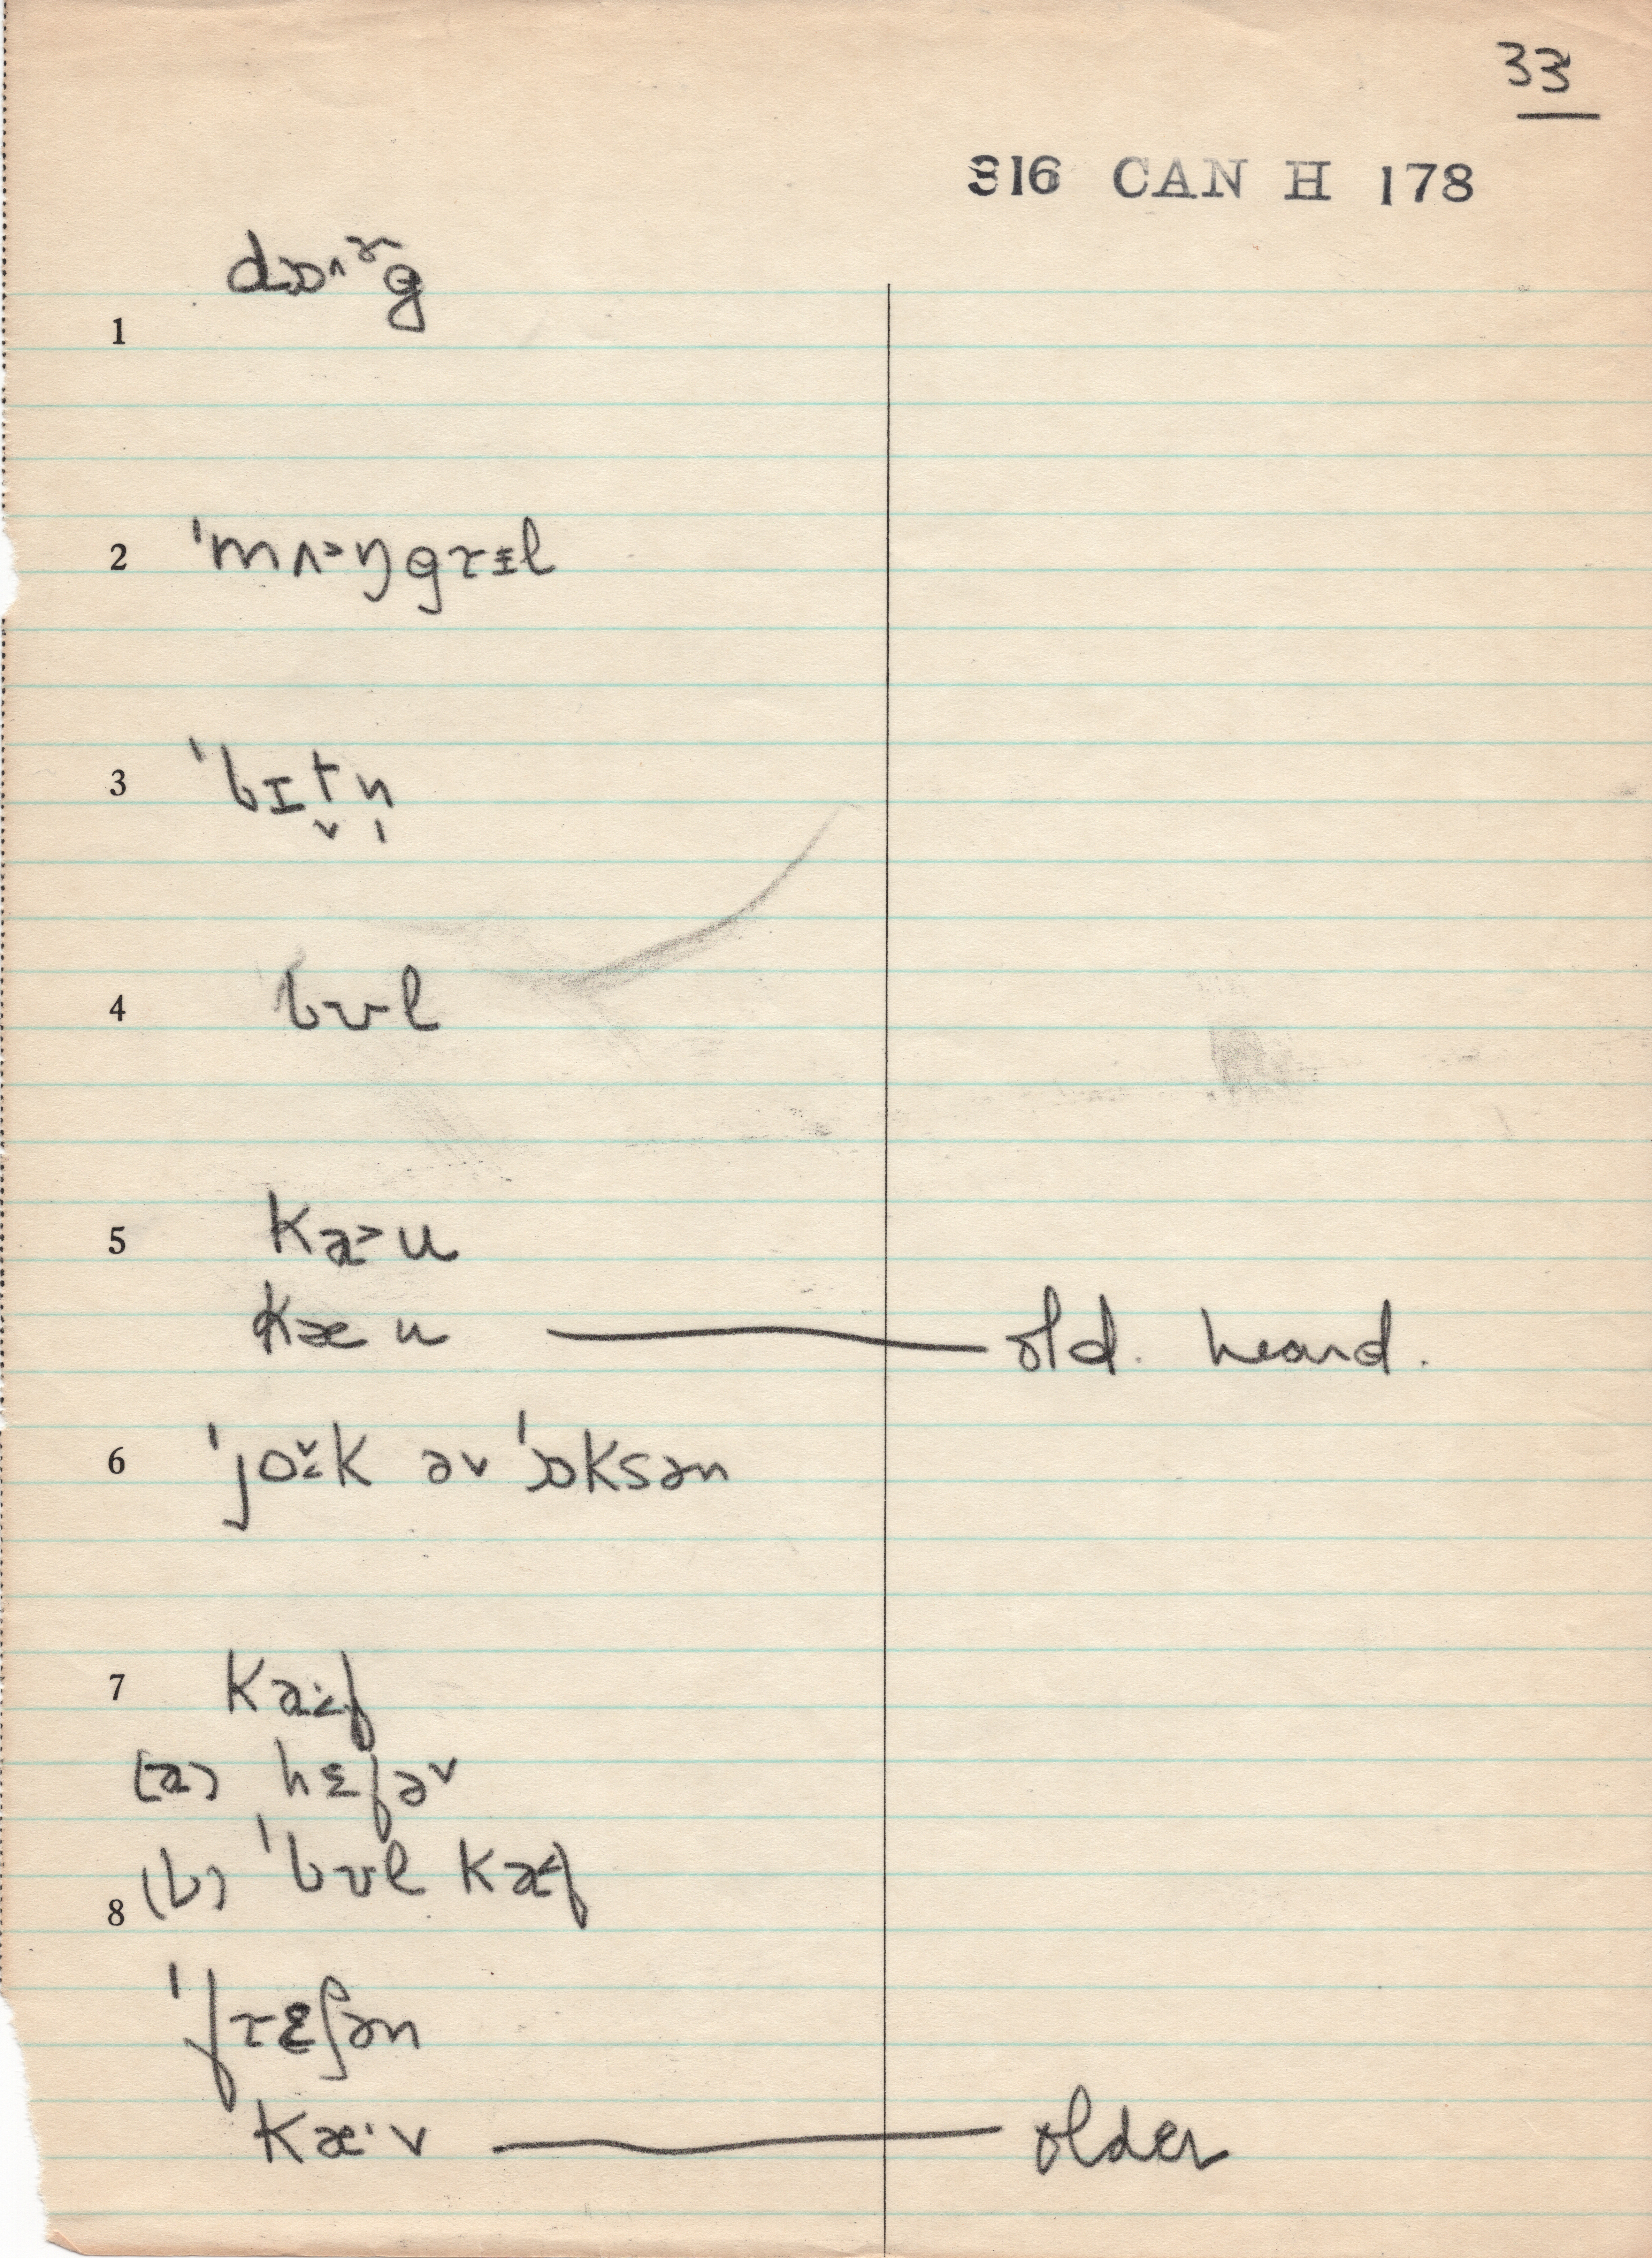 33
316 CAN H 178
1 dɒ^ɤg
2 'mʌ>ŋgrɨl
3 'bɪt̬n̩
4 bʊl
5 ka>u
kæu — old. heard.
6 'jo̬<k əv 'ɒksən
7 ka:<f
(a) hɛfəv
(b) 'bʊl ka<f
8
'frɛʃən
kæ·v — older